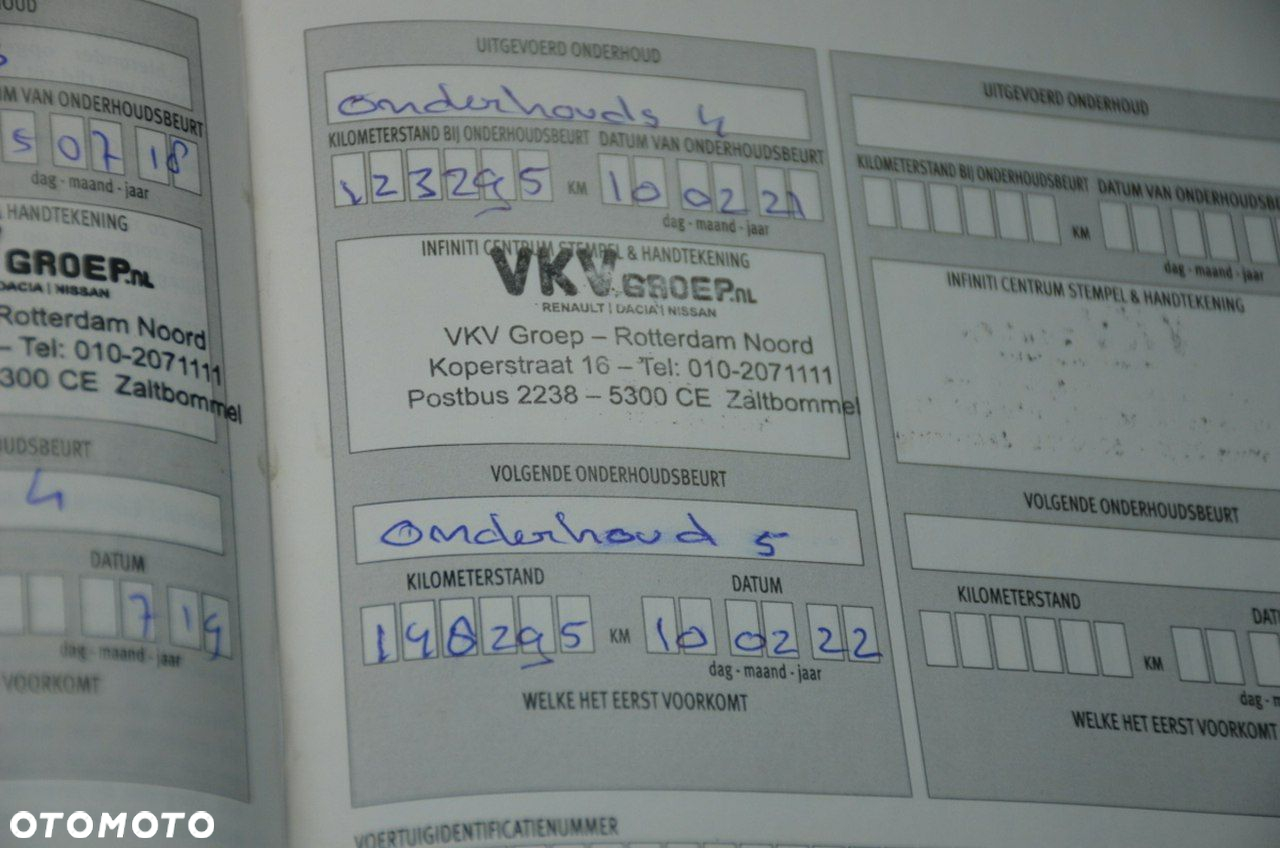 OUD
M VAN ONDERHOUDSBEURT
5 07 18
dag - maand - jaar
HANDTEKENING
GROEP.NL
DACIA | NISSAN
Rotterdam Noord
– Tel: 010-2071111
300 CE Zaltbommel
OUDSBEURT
4
DATUM
7 19
dag - maand - jaar
VOORKOMT
UITGEVOERD ONDERHOUD
Onderhouds 4
KILOMETERSTAND BIJ ONDERHOUDSBEURT DATUM VAN ONDERHOUDSBEURT
123295 KM 10 02 21
dag - maand - jaar
INFINITI CENTRUM STEMPEL & HANDTEKENING
VKV GROEP.NL
RENAULT | DACIA | NISSAN
VKV Groep – Rotterdam Noord
Koperstraat 16 – Tel: 010-2071111
Postbus 2238 – 5300 CE Zaltbommel
VOLGENDE ONDERHOUDSBEURT
Onderhoud 5
KILOMETERSTAND DATUM
198295 KM 10 02 22
dag - maand - jaar
WELKE HET EERST VOORKOMT
VOERTUIGIDENTIFICATIENUMMER
UITGEVOERD ONDERHOUD
KILOMETERSTAND BIJ ONDERHOUDSBEURT DATUM VAN ONDERHOUDSBE
KM
dag - maand - jaar
INFINITI CENTRUM STEMPEL & HANDTEKENING
VOLGENDE ONDERHOUDSBEURT
KILOMETERSTAND DAT
KM
dag - m
WELKE HET EERST VOORKOMT
OTOMOTO